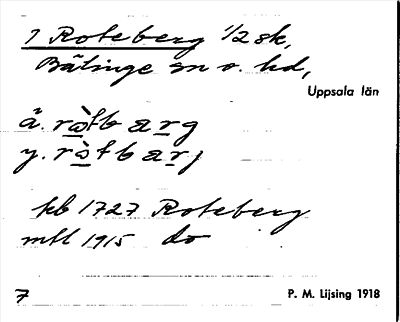 7 Roteberg 1/2 sk,
Bälinge sn o. hd,
Uppsala län
ä. ròtbarg
y. ròtbarj
kb 1727 Roteberg
mtl 1915 do
7 P. M. Lijsing 1918